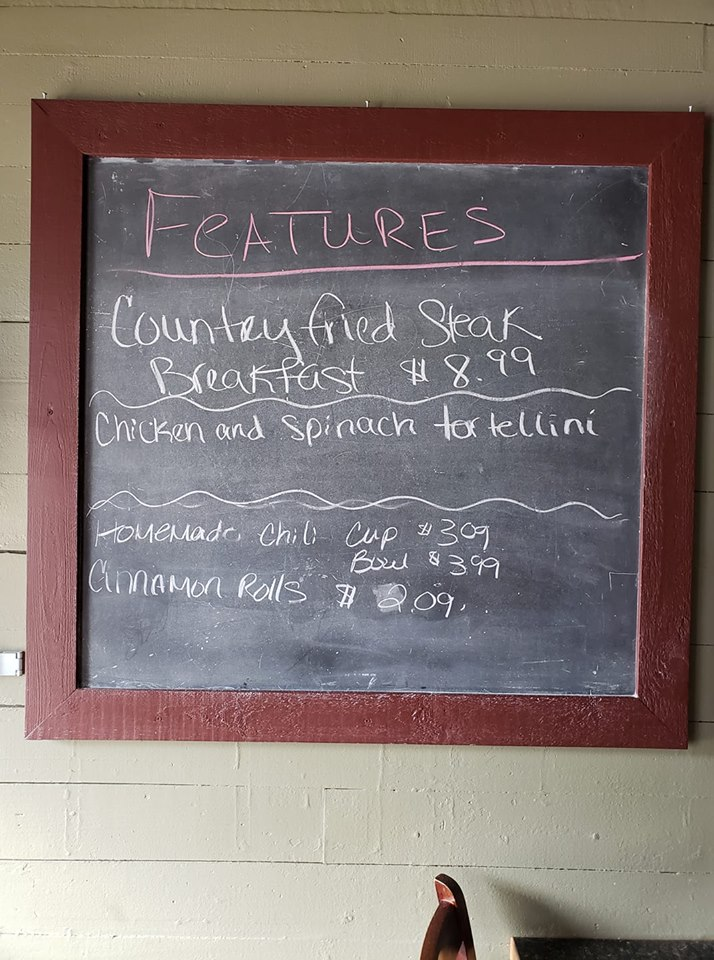 FeATURES
Country fried Steak
Breakfast $8.99
Chicken and spinach tortellini
Homemade Chili Cup $3.09
Bowl $3.99
Cinnamon Rolls $2.09.